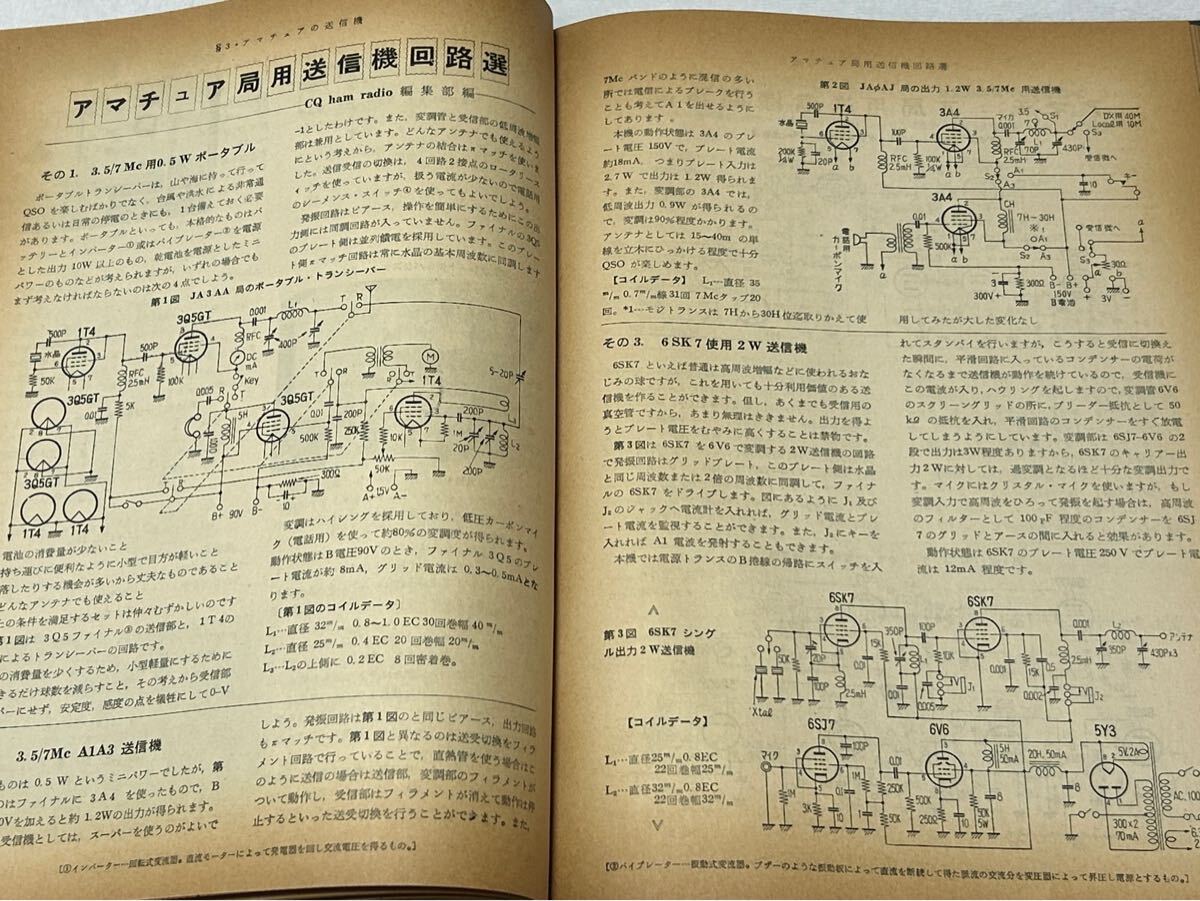 §3・アマチュアの送信機
アマチュア局用送信機回路選
CQ ham radio 編集部編
その1. 3.5/7Mc用0.5Wポータブル
ポータブルトランシーバーは,山や海に持って行って
QSOを楽しむばかりでなく,台風や洪水による非常通
信あるいは日常の停電のときにも,1台備えておく必要
があります。ポータブルといっても,本格的なものはバ
ッテリーとインバーター①或はバイブレーター②を電源
とした出力10W以上のもの,乾電池を電源としたミニ
パワーのものなどが考えられますが,いずれの場合でも
まず考えなければならないのは次の4点でしょう。
−1としたわけです。また,変調管と受信部の低周波増幅
部は兼用としています。どんなアンテナでも使えるよう
にという考えから,アンテナの結合はπマッチを使いま
した。送信受信の切換は,4回路2接点のロータリース
イッチを使っていますが,扱う電流が少ないので電話用
のレーメンス・スイッチ④を使ってもよいでしょう。
発振回路はピアース,操作を簡単にするためにこの出
力側には同調回路が入っていません。ファイナルの3Q5
のプレート側は並列饋電を採用しています。このプレー
ト側πマッチ回路は常に水晶の基本周波数に同調します
第1図 JA3AA局のポータブル・トランシーバー
500P
1T4
水晶
50K
RFC
2.5mH
0.01
5K
500P
3Q5GT
100K
0.001
RFC
DC
mA
Key
L1
400P
T
R
1T4
M
5~20P
3Q5GT
3Q5GT
1T4
1T4
0.005
5H
3Q5GT
500K
0.01
200P
250K
10K
50K
300Ω
10
200P
1M
20P
200P
20P
L2
L3
B+ 90V
B-
A+
1.5V
A-
電池の消費量が少ないこと
持ち運びに便利なように小型で目方が軽いこと
落したりする機会が多いから丈夫なものであること
どんなアンテナでも使えること
の条件を満足するセットは仲々むずかしいのです
1図は3Q5ファイナル③の送信部と,1T4の
によるトランシーバーの回路です。
の消費量を少くするため,小型軽量にするために
きるだけ球数を減らすこと,その考えから受信部
バーにせず,安定度,感度の点を犠牲にして0−V
変調はハイシングを採用しており,低圧カーボンマイ
ク(電話用)を使って約80%の変調度が得られます。
動作状態はB電圧90Vのとき,ファイナル3Q5のプレ
ート電流が約8mA,グリッド電流は0.3~0.5mAとな
ります。
[第1図のコイルデータ]
L1…直径32m/m 0.8~1.0EC30回巻幅40m/m
L2…直径25m/m 0.4EC20回巻幅20m/m
L3…L2の上側に0.2EC 8回密着巻。
3.5/7Mc A1A3 送信機
ものは0.5Wというミニパワーでしたが,第
のはファイナルに3A4を使ったもので,B
0Vを加えると約1.2Wの出力が得られます。
受信機としては,スーパーを使うのがよいで
しょう。発振回路は第1図のと同じピアース,出力回路
もπマッチです。第1図と異なるのは送受切換をフィラ
メント回路で行っていることで,直熱管を使う場合はこ
のように送信の場合は送信部,変調部のフィラメントが
ついて動作し,受信部はフィラメントが消えて動作は停
止するといった送受切換を行うことができます。また,
[①インバーター―回転式変流器。直流モーターによって発電器を回し交流電圧を得るもの。]
アマチュア局用送信機回路選
7Mcバンドのように混信の多い
所では電信によるブレークを行う
ことも考えてA1を出せるように
してあります。
本機の動作状態は3A4のプレ
ート電圧150Vで,プレート電流
約18mA,つまりプレート入力は
2.7Wで出力は1.2W得られま
す。また,変調部の3A4では,
低周波出力0.9Wが得られるの
で,変調は90%程度かかります。
アンテナとしては15~40mの単
線を立木にひっかける程度で十分
QSOが楽しめます。
【コイルデータ】 L1…直径35
m/m 0.7m/m線31回 7Mcタップ20
回。*1…モジトランスは7Hから30H位迄取りかえて使
用してみたが大した変化なし
第2図 JAφAJ局の出力1.2W 3.5/7Mc用送信機
500P
1T4
水晶
200K
1/4W
20P
RFC
2.5mH
100P
100K
1/4W
3A4
マイカ
0.001
3.5
S1
70P
RFC
2.5mH
430P
DX用40M
Local用10M
S3
受信機へ
10
キー
3A4
電話用
カーボンマイク
CH
7H~30H
※1
受信機へ
300Ω
3
300V+
B-
B+
150V
B電池
3V
その3. 6SK7使用2W送信機
6SK7といえば普通は高周波増幅などに使われるおな
じみの球ですが,これを用いても十分利用価値のある送
信機を作ることができます。但し,あくまでも受信用の
真空管ですから,あまり無理はききません。出力を得よ
うとプレート電圧をむやみに高くすることは禁物です。
第3図は6SK7を6V6で変調する2W送信機の回路
で発振回路はグリッドプレート,このプレート側は水晶
と同じ周波数または2倍の周波数に同調して,ファイナ
ルの6SK7をドライブします。図にあるようにJ1及び
J2のジャックへ電流計を入れれば,グリッド電流とプレ
ート電流を監視することができます。また,J2にキーを
入れればA1電波を発射することもできます。
本機では電源トランスのB捲線の帰路にスイッチを入
れてスタンバイを行いますが,こうすると受信に切換え
た瞬間に,平滑回路に入っているコンデンサーの電荷が
なくなるまで送信機が動作を続けているので,受信機に
この電波が入り,ハウリングを起しますので,変調管6V6
のスクリーングリッドの所に,ブリーダー抵抗として50
kΩの抵抗を入れ,平滑回路のコンデンサーをすぐ放電
してしまうようにしています。変調部は6SJ7-6V6の2
段で出力は3W程度ありますから,6SK7のキャリアー出
力2Wに対しては,過変調となるほど十分な変調出力で
す。マイクにはクリスタル・マイクを使いますが,もし
変調入力で高周波をひろって発振を起す場合は,高周波
のフィルターとして100pF程度のコンデンサーを6SJ
7のグリッドとアースの間に入れると効果があります。
動作状態は6SK7のプレート電圧250Vでプレート電
流は12mA程度です。
第3図 6SK7シング
ル出力2W送信機
【コイルデータ】
L1…直径25m/m0.8EC
22回巻幅25m/m
L2…直径32m/m0.8EC
22回巻幅32m/m
6SK7
Xtal
50K
20P
100P
2.5mH
15K
350P
L1
0.01
0.005
100P
10K
J1
6SK7
0.01
15K
0.002
0.5
0.001
2.5mH
J2
L2
350P
430P×3
アンテナ
6SJ7
マイク
1M
3K
10
100P
0.01
500K
6V6
250Ω
10
50K
5W
5H
50mA
20H,50mA
8
8
5Y3
5V.2A
300×2
70mA
AC.100
[②バイブレーター―振動式変流器。ブザーのような振動板によって直流を断続して得た脈流の交流分を変圧器によって昇圧し電源とするもの。]